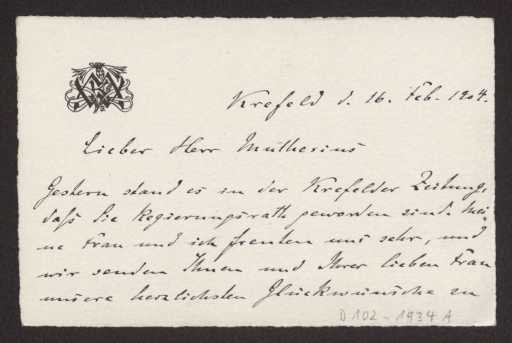 Krefeld d. 16. Feb. 1904.
Lieber Herr Muthesius
Gestern stand es in der Krefelder Zeitung,
daß Sie Regierungsrath geworden sind. Mei-
ne Frau und ich freuten uns sehr, und
wir senden Ihnen und Ihrer lieben Frau
unsere herzlichsten Glückwünsche zu
D 102 - 1934 A